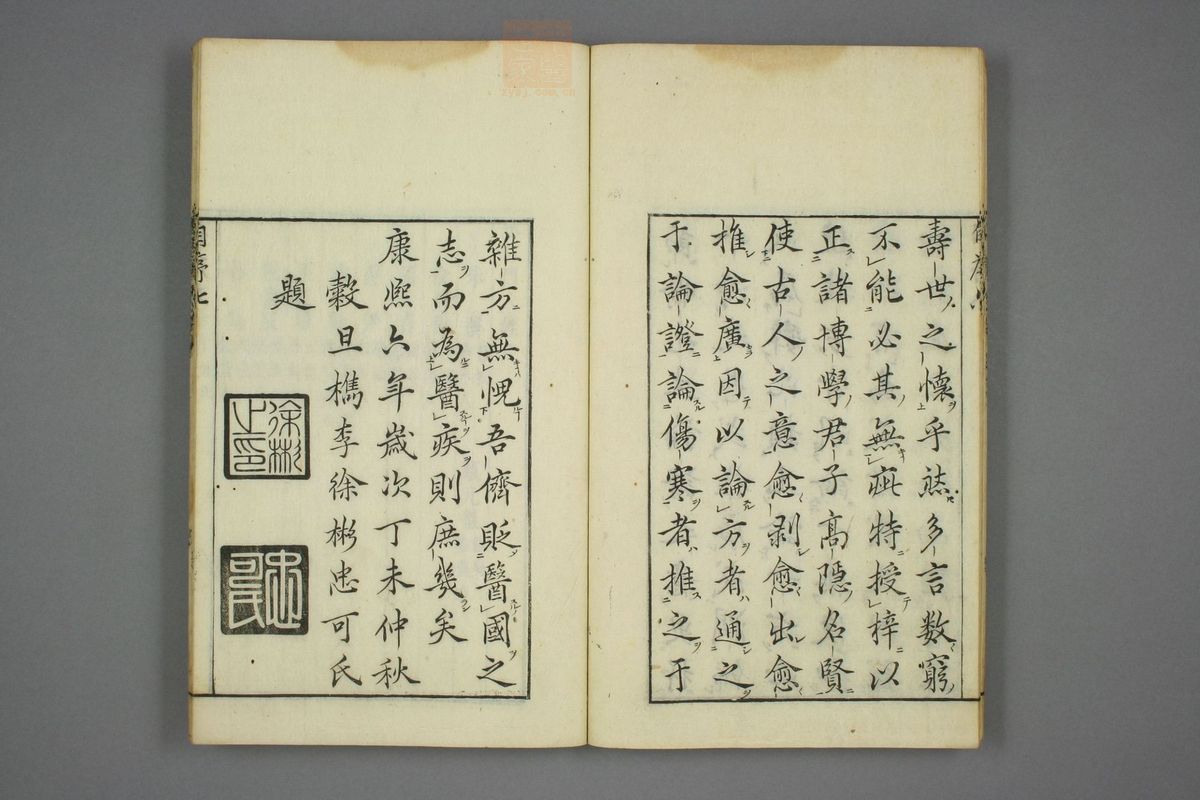 壽世之懷乎然多言數窮
不能必其無疵特授梓以
正諸博學君子高隱名賢
使古人之意愈剥愈出愈
推愈廣因以論方者通之
于論證論傷寒者推之于
雜方無愧吾儕貶醫國之
志而為醫疾則庶幾矣
康熙六年歲次丁未仲秋
穀旦檇李徐彬忠可氏
題
徐彬之印
忠可氏
zysj.com.cn